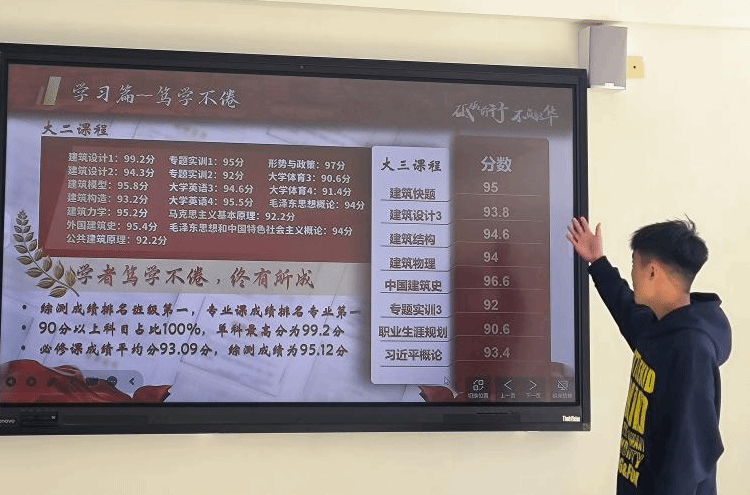 学习篇—笃学不倦
大二课程
建筑设计1：99.2分 专题实训1：95分 形势与政策：97分
建筑设计2：94.3分 专题实训2：92分 大学体育3：90.6分
建筑模型：95.8分 大学英语3：94.6分 大学体育4：91.4分
建筑构造：93.2分 大学英语4：95.5分 毛泽东思想概论：94分
建筑力学：95.2分 马克思主义基本原理：92.2分
外国建筑史：95.4分 毛泽东思想和中国特色社会主义概论：94分
公共建筑原理：92.2分
学者笃学不倦，终有所成
• 综测成绩排名班级第一，专业课成绩排名专业第一
• 90分以上科目占比100%，单科最高分为99.2分
• 必修课成绩平均分93.09分，综测成绩为95.12分
大三课程 分数
建筑快题 95
建筑设计3 93.8
建筑结构 94.6
建筑物理 94
中国建筑史 96.6
专题实训3 92
职业生涯规划 90.6
习近平概论 93.4
上一页 下一页
ThinkVision